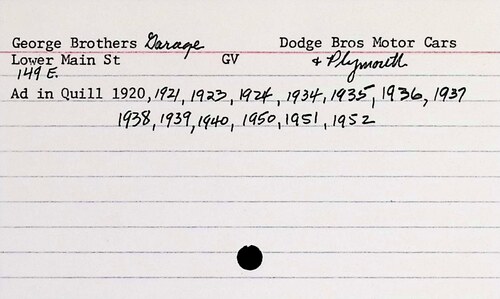 George Brothers Garage Dodge Bros Motor Cars
Lower Main St GV & Plymouth
149 E.
Ad in Quill 1920, 1921, 1923, 1924, 1934, 1935, 1936, 1937
1938, 1939, 1940, 1950, 1951, 1952